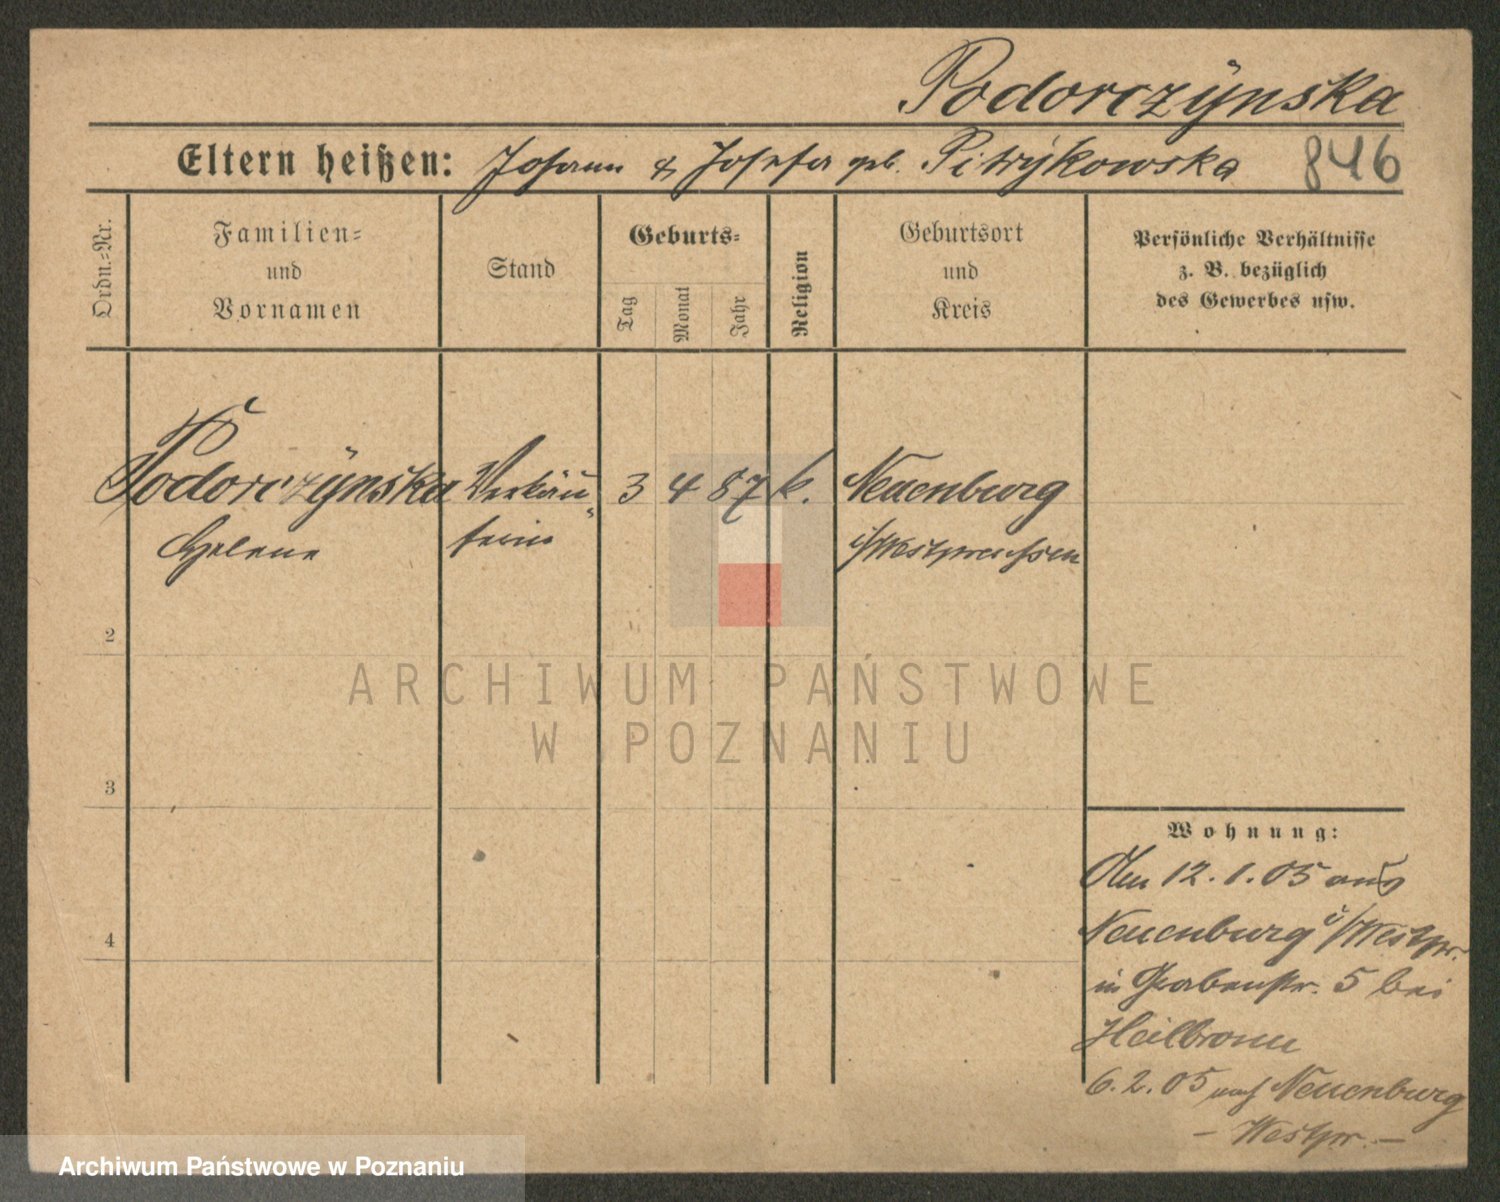 Podorczÿnska
Eltern heißen: Johann & Josefa geb. Pitrÿkowska 846
Ordn.-Nr.
Familien-
und
Vornamen
Stand
Geburts-
Tag
Monat
Jahr
Religion
Geburtsort
und
Kreis
Persönliche Verhältnisse
z. B. bezüglich
des Gewerbes usw.
Podorczÿnska Verkäu- 3 4 87 k. Neuenburg
Helene ferin i/Westpreussen
2
3
4
Wohnung:
Am 12.1.05 aus
Neuenburg i/Westpr.
in Grabenstr. 5 bei
Heilbronn
6.2.05 nach Neuenburg
- Westpr. -
ARCHIWUM PAŃSTWOWE
W POZNANIU
Archiwum Państwowe w Poznaniu